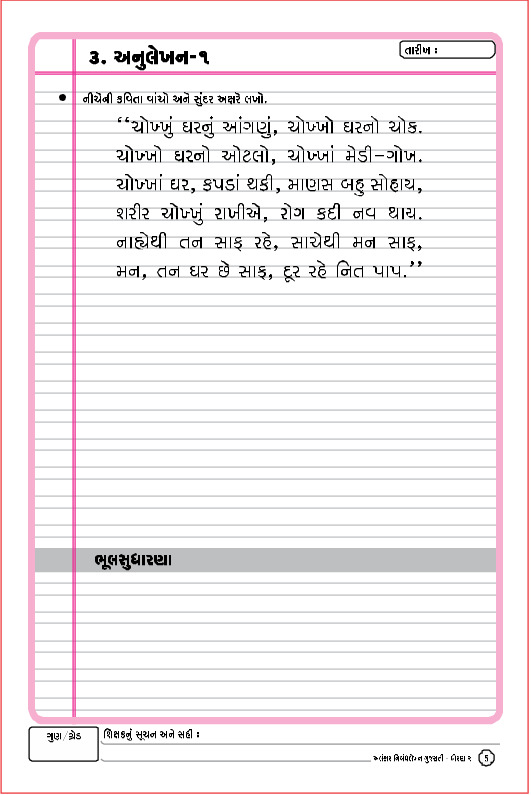 ૩. અનુલેખન-૧
તારીખ :
● નીચેની કવિતા વાંચો અને સુંદર અક્ષરે લખો.
‘‘ચોખ્ખું ઘરનું આંગણું, ચોખ્ખો ઘરનો ચોક.
ચોખ્ખો ઘરનો ઓટલો, ચોખ્ખાં મેડી–ગોખ.
ચોખ્ખાં ઘર, કપડાં થકી, માણસ બહુ સોહાય,
શરીર ચોખ્ખું રાખીએ, રોગ કદી નવ થાય.
નાહ્યેથી તન સાફ રહે, સાચેથી મન સાફ,
મન, તન ઘર છે સાફ, દૂર રહે નિત પાપ.’’
ભૂલસુધારણા
ગુણ/ગ્રેડ
શિક્ષકનું સૂચન અને સહી :
અલંકાર નિબંધલેખન ગુજરાતી - ધોરણ ૨ 5